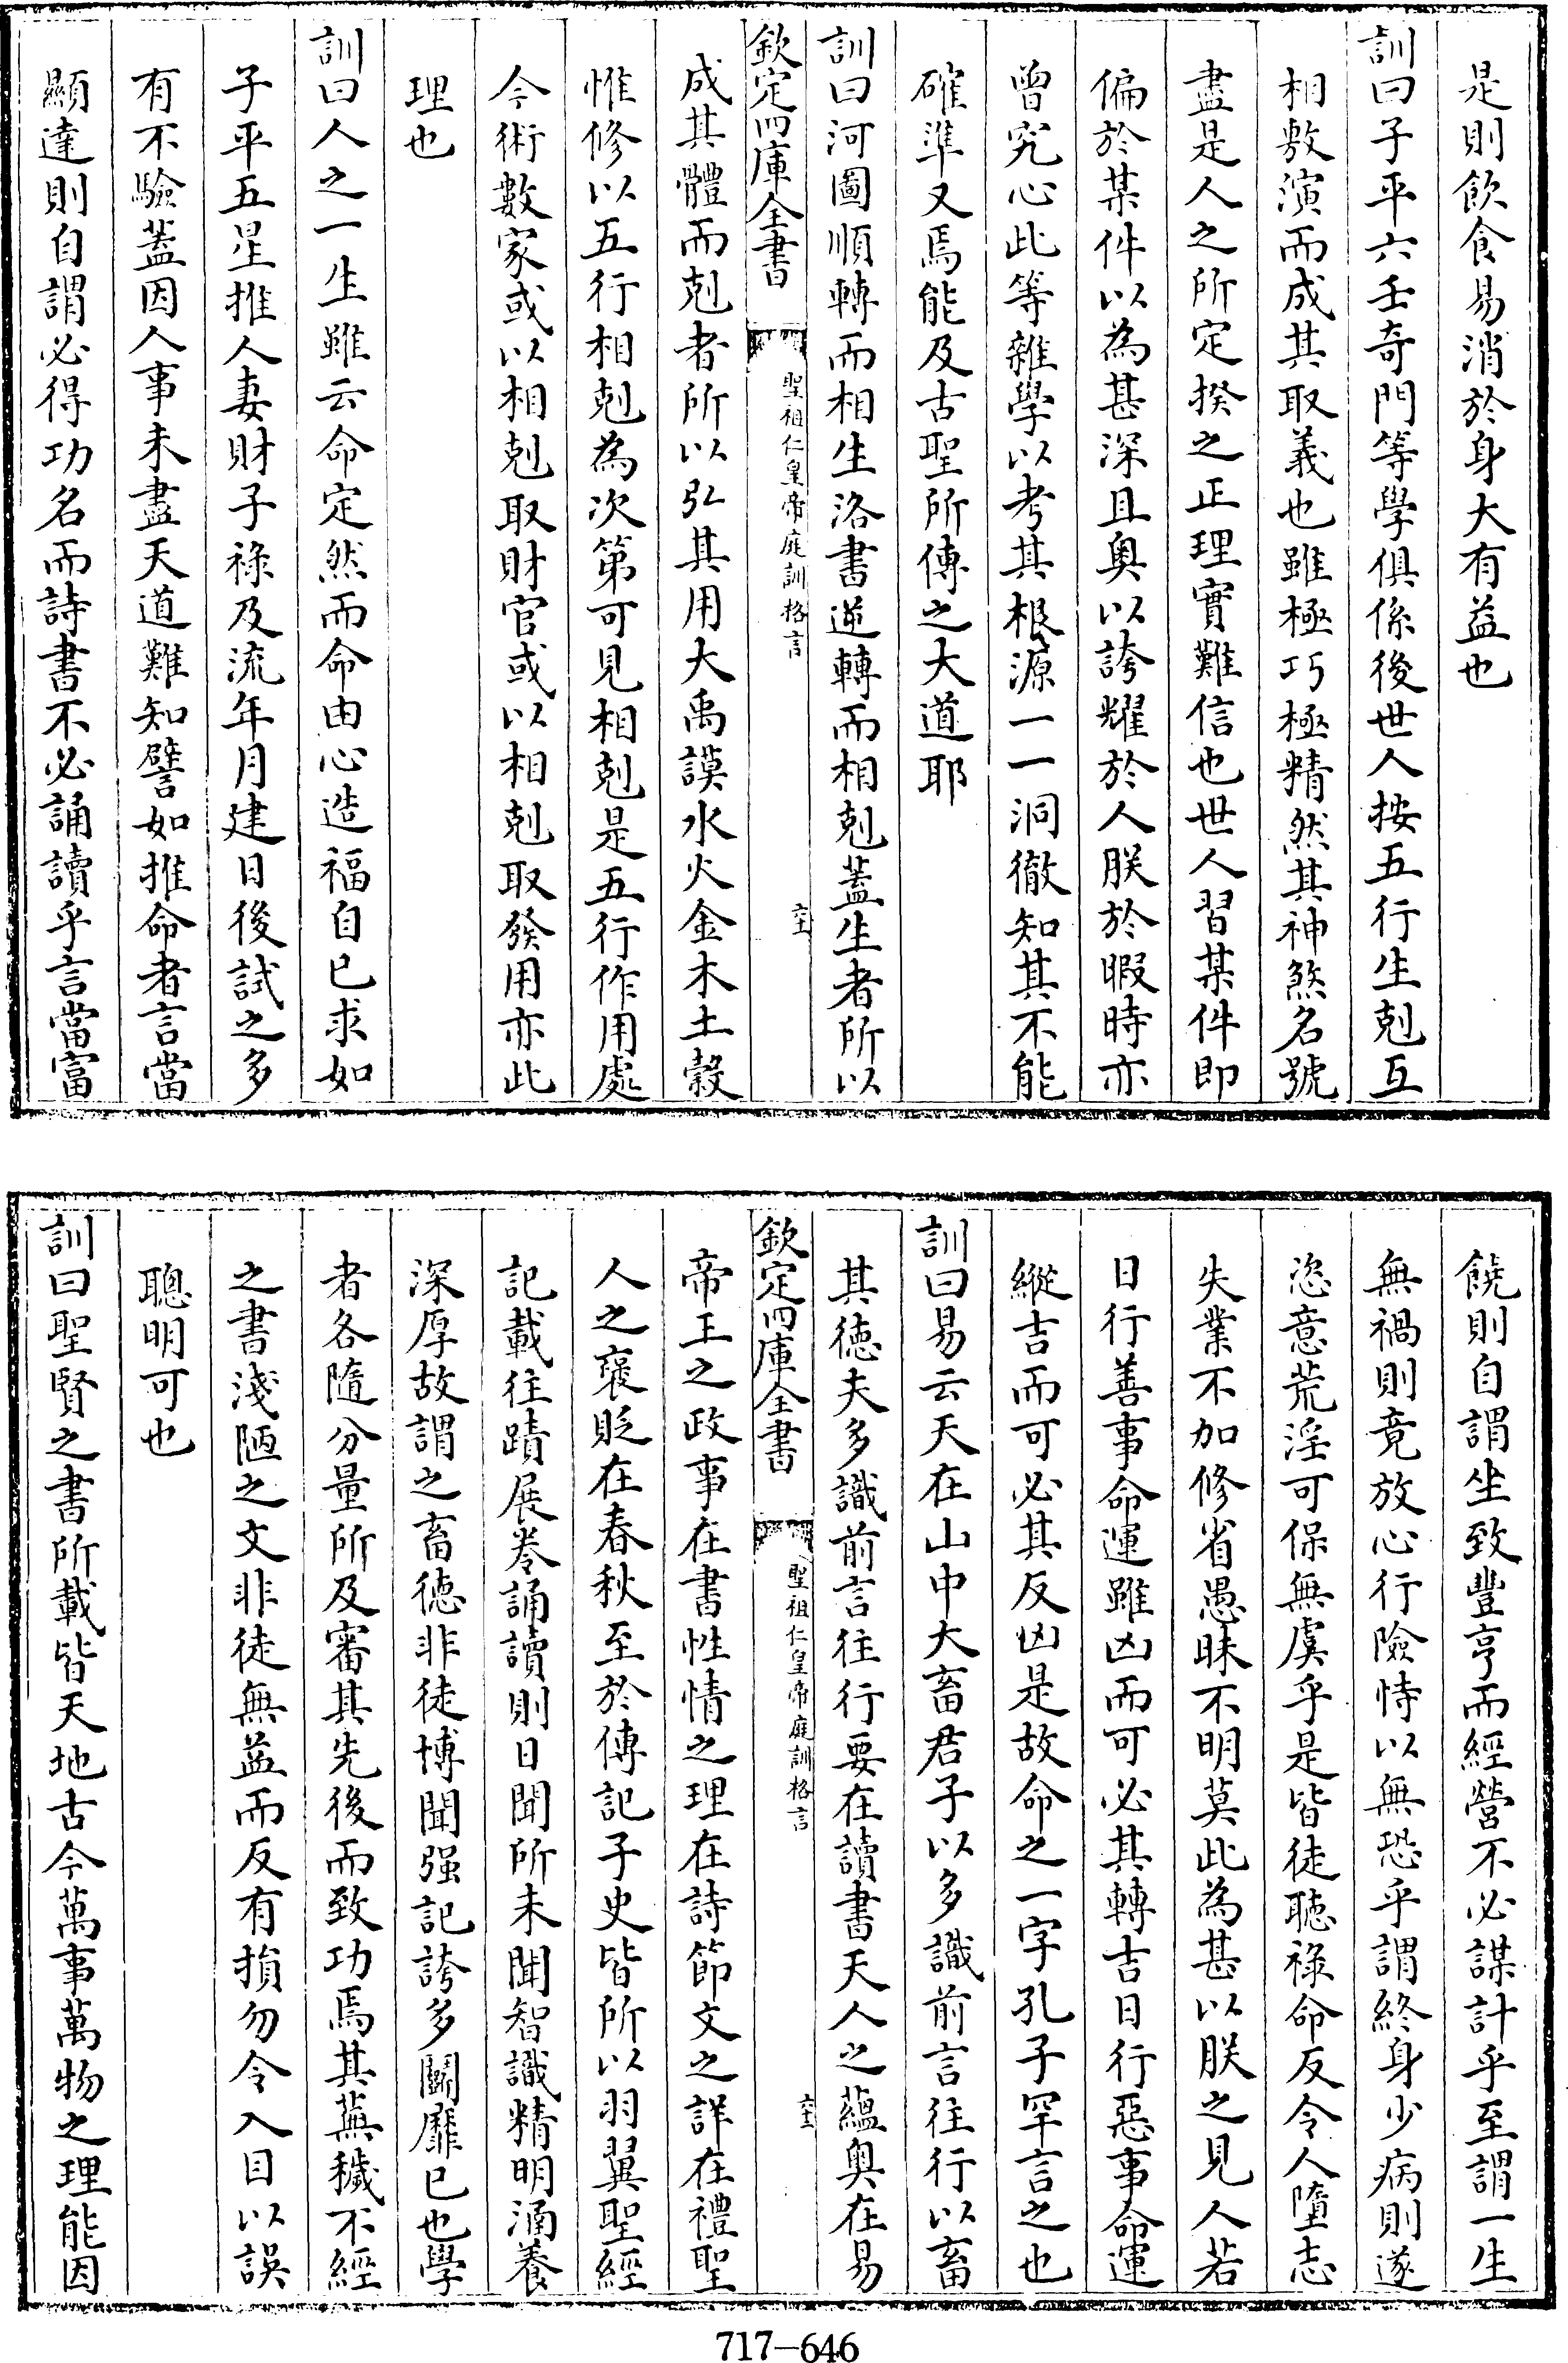 是則飲食易消於身大有益也
訓曰子平六壬奇門等學俱係後世人按五行生剋互
相敷演而成其取義也雖極巧極精然其神煞名號
盡是人之所定揆之正理實難信也世人習某件即
偏於某件以為甚深且奧以誇耀於人朕於暇時亦
曾究心此等雜學以考其根源一一洞徹知其不能
確準又焉能及古聖所傳之大道耶
訓曰河圖順轉而相生洛書逆轉而相剋蓋生者所以
欽定四庫全書
聖祖仁皇帝庭訓格言
成其體而剋者所以弘其用大禹謨水火金木土穀
惟修以五行相剋為次第可見相剋是五行作用處
今術數家或以相剋取財官或以相剋取發用亦此
理也
訓曰人之一生雖云命定然而命由心造福自己求如
子平五星推人妻財子祿及流年月建日後試之多
有不驗蓋因人事未盡天道難知譬如推命者言當
顯達則自謂必得功名而詩書不必誦讀乎言當富
饒則自謂坐致豐亨而經營不必謀計乎至謂一生
無禍則竟放心行險恃以無恐乎謂終身少病則遂
恣意荒淫可保無虞乎是皆徒聽祿命反令人墮志
失業不加修省愚昧不明莫此為甚以朕之見人若
日行善事命運雖凶而可必其轉吉日行惡事命運
縱吉而可必其反凶是故命之一字孔子罕言之也
訓曰易云天在山中大畜君子以多識前言往行以畜
其德夫多識前言往行要在讀書天人之蘊奧在易
欽定四庫全書
聖祖仁皇帝庭訓格言
帝王之政事在書性情之理在詩節文之詳在禮聖
人之褒貶在春秋至於傳記子史皆所以羽翼聖經
記載往蹟展卷誦讀則日聞所未聞智識精明涵養
深厚故謂之畜德非徒博聞强記誇多鬬靡已也學
者各隨分量所及審其先後而致功焉其蕪穢不經
之書淺陋之文非徒無益而反有損勿令入目以誤
聰明可也
訓曰聖賢之書所載皆天地古今萬事萬物之理能因
717-646